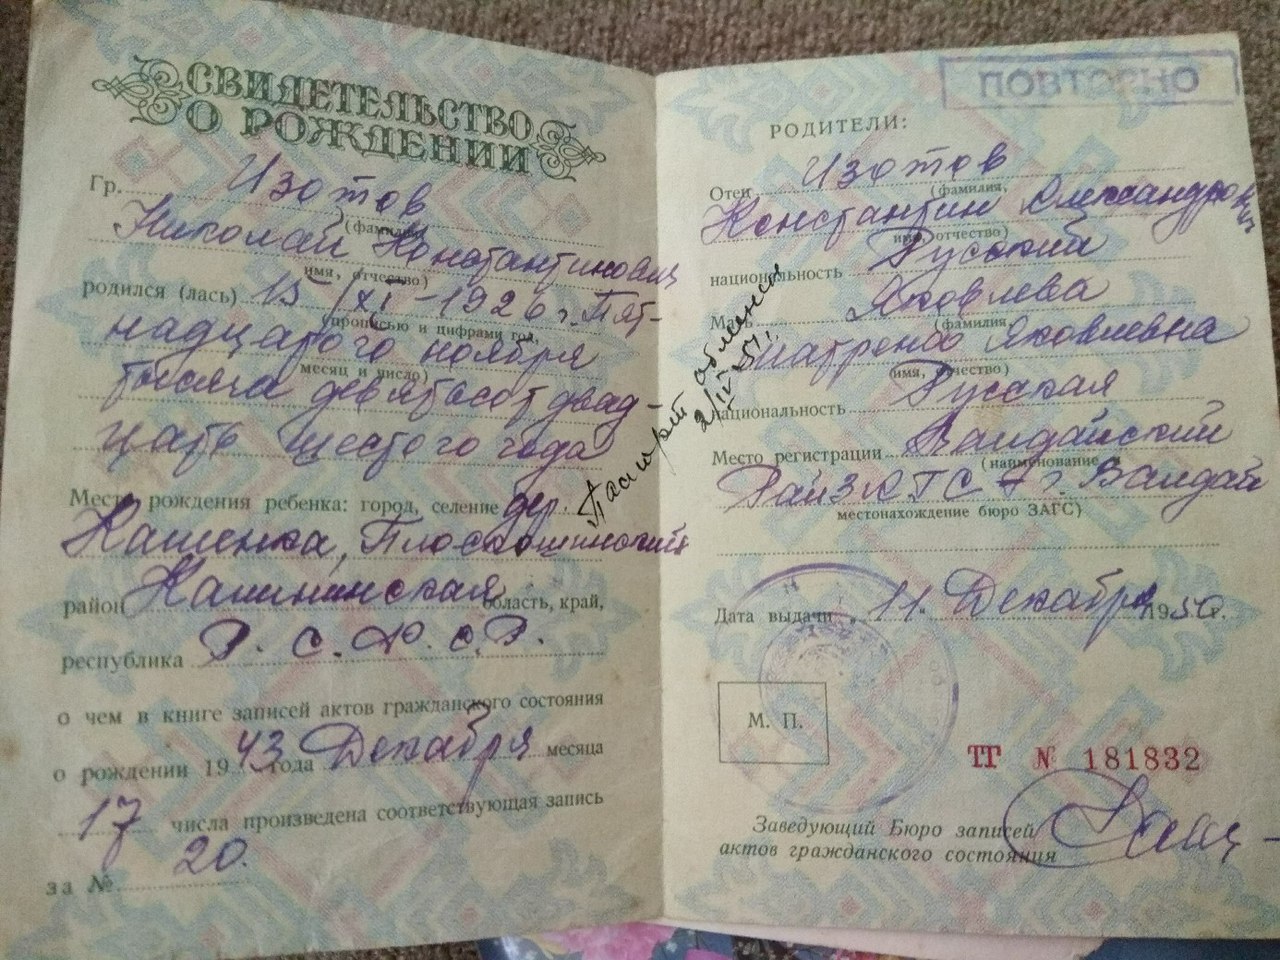 СВИДЕТЕЛЬСТВО
О РОЖДЕНИИ
Гр. Изотов
(фамилия,
Николай Константинович
имя, отчество)
родился (лась) 15/XI-1926 г. Пят-
(прописью и цифрами год,
надцатого ноября
месяц и число)
тысяча девятьсот двад-
цать шестого года
Место рождения ребенка: город, селение дер.
Кашенка, Плоскошинский
район Калининская область, край,
республика Р.С.Ф.С.Р.
о чем в книге записей актов гражданского состояния
о рождении 1943 года Декабря месяца
17 числа произведена соответствующая запись
за № 20.
Паспорт
2/IV-51г.
ПОВТОРНО
РОДИТЕЛИ:
Отец Изотов
(фамилия,
Константин Александрович
имя, отчество)
национальность Русский
Мать Яковлева
(фамилия,
Матрена Яковлевна
имя, отчество)
национальность Русская
Место регистрации Валдайский
(наименование и
РайЗАГС г. Валдай
местонахождение бюро ЗАГС)
Дата выдачи 11. Декабря 1950 г.
М. П.
ТГ № 181832
Заведующий Бюро записей
актов гражданского состояния